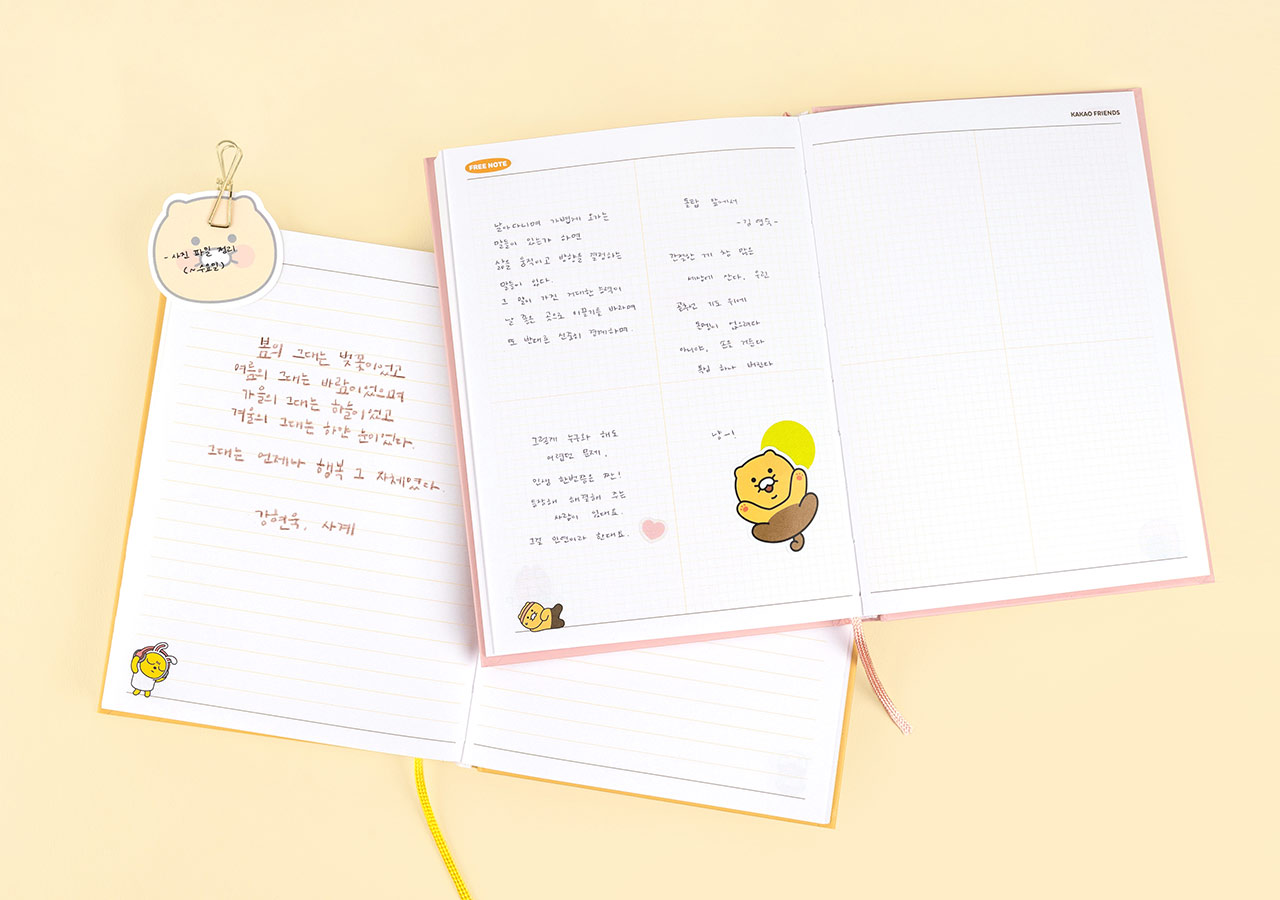 - 사진 파일 정리
(~수요일)
봄의 그대는 벚꽃이었고
여름의 그대는 바람이었으며
가을의 그대는 하늘이었고
겨울의 그대는 하얀 눈이었다.
그대는 언제나 행복 그 자체였다.
강현욱, 사계
FREE NOTE
날아다니며 가볍게 오가는
말들이 있는가 하면
삶을 움직이고 방향을 결정하는
말들이 있다.
그 말이 가진 거대한 능력이
날 좋은 곳으로 이끌기를 바라며
또 반대로 신중히 경계하며.
돌탑 앞에서
- 김영숙 -
간절한 게 참 많은
세상에 산다, 우린
곧추선 기도 위에
돌멩이 얹으려다
아니야, 손을 거둔다
욕심 하나 버린다
그렇게 누구와 해도
어렵던 문제,
인생 한번쯤은 짠!
등장해 해결해 주는
사람이 있대요.
그걸 인연이라 한대요.
냥-!
KAKAO FRIENDS